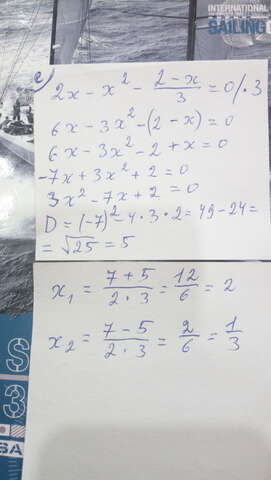 SAILING
c) 2x - x² - (2 - x)/3 = 0 / · 3
6x - 3x² - (2 - x) = 0
6x - 3x² - 2 + x = 0
-7x + 3x² + 2 = 0
3x² - 7x + 2 = 0
D = (-7)² - 4 · 3 · 2 = 49 - 24 =
= √25 = 5
x₁ = (7 + 5)/(2 · 3) = 12/6 = 2
x₂ = (7 - 5)/(2 · 3) = 2/6 = 1/3
S
3